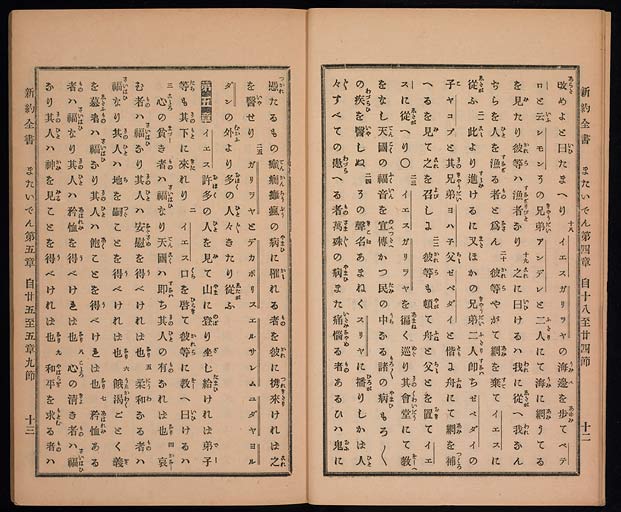 新約全書　またいでん第四章　自十八至廿四節　十二
改めよと曰たまへり　イエスガリラヤの海邊を歩てペテ
ロと云シモンその兄弟アンデレと二人にて海に網うてる
を見たり彼等ハ漁者なり　之に曰けるハ我に從へ我なん
ぢらを人を漁る者と爲ん　彼等やがて網を棄てイエスに
從ふ　此より進けるに又ほかの兄弟二人即ちゼベダイの
子ヤコブと其兄弟ヨハ子父ゼベダイと偕に舟にて網を補
へるを見て之を召しに　彼等も頓て舟と父とを置てイエ
スに從へり〇　イエスガリラヤを徧く巡り其會堂にて敎
をなし天國の福音を宣傳かつ民の中なる諸の病もろ〱
の疾を醫しぬ　その聲名あまねくスリヤに播りしかば人
々すべての患へる者萬殊の病また痛惱る者あるひハ鬼に
憑たるもの癲癇癱瘋の病に罹れる者を彼に携來ければ之
を醫せり　ガリラヤとデカポリスエルサレムユダヤヨル
ダンの外より多の人々きたり從ふ
第五章　イエス許多の人を見て山に登り坐し給ければ弟子
等も其下に來れり　イエス口を啓て彼等に敎へ曰けるハ
心の貧き者ハ福なり天國ハ即ち其人の有なれば也　哀
む者ハ福なり其人ハ安慰を得べければ也　柔和なる者ハ
福なり其人ハ地を嗣ことを得べければ也　餓渴ごとく義
を慕者ハ福なり其人ハ飽ことを得べければ也　矜恤ある
者ハ福なり其人ハ矜恤を得べければ也　心の清き者ハ福
なり其人ハ神を見ことを得べければ也　和平を求る者ハ
新約全書　またいでん第五章　自廿五至五章九節　十三